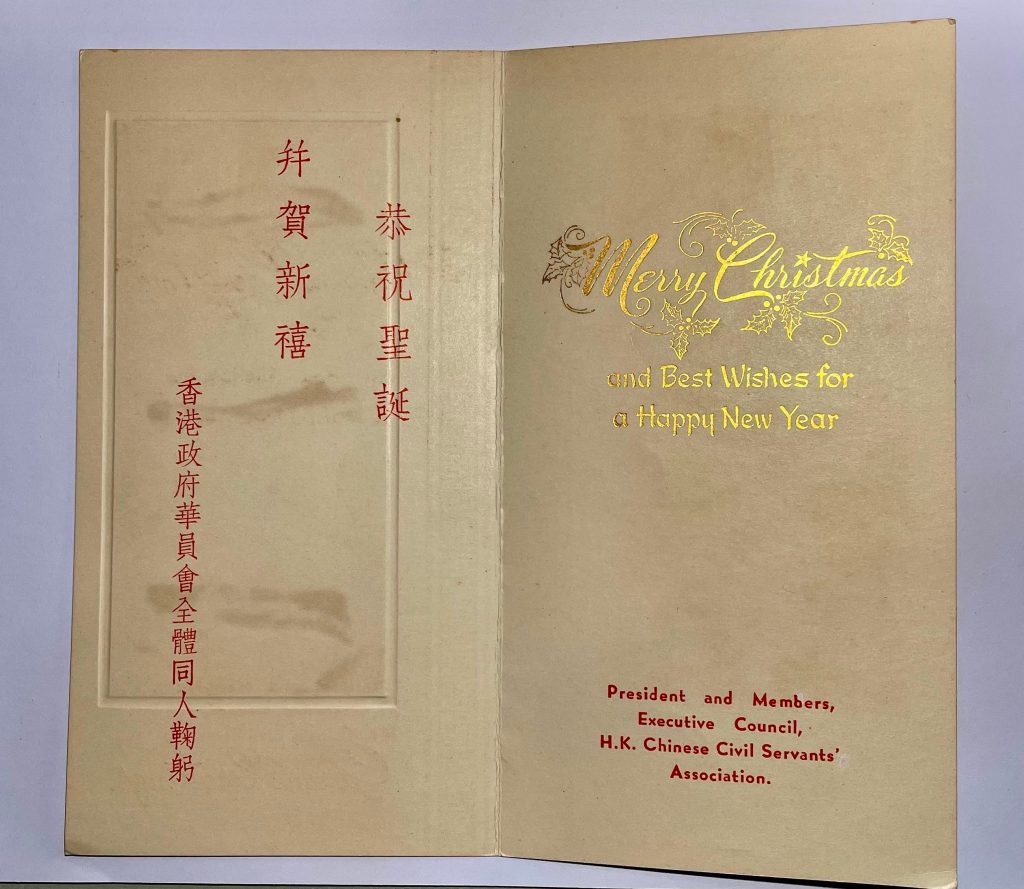 恭祝聖誕
幷賀新禧
香港政府華員會全體同人鞠躬
Merry Christmas
and Best Wishes for
a Happy New Year
President and Members,
Executive Council,
H.K. Chinese Civil Servants'
Association.